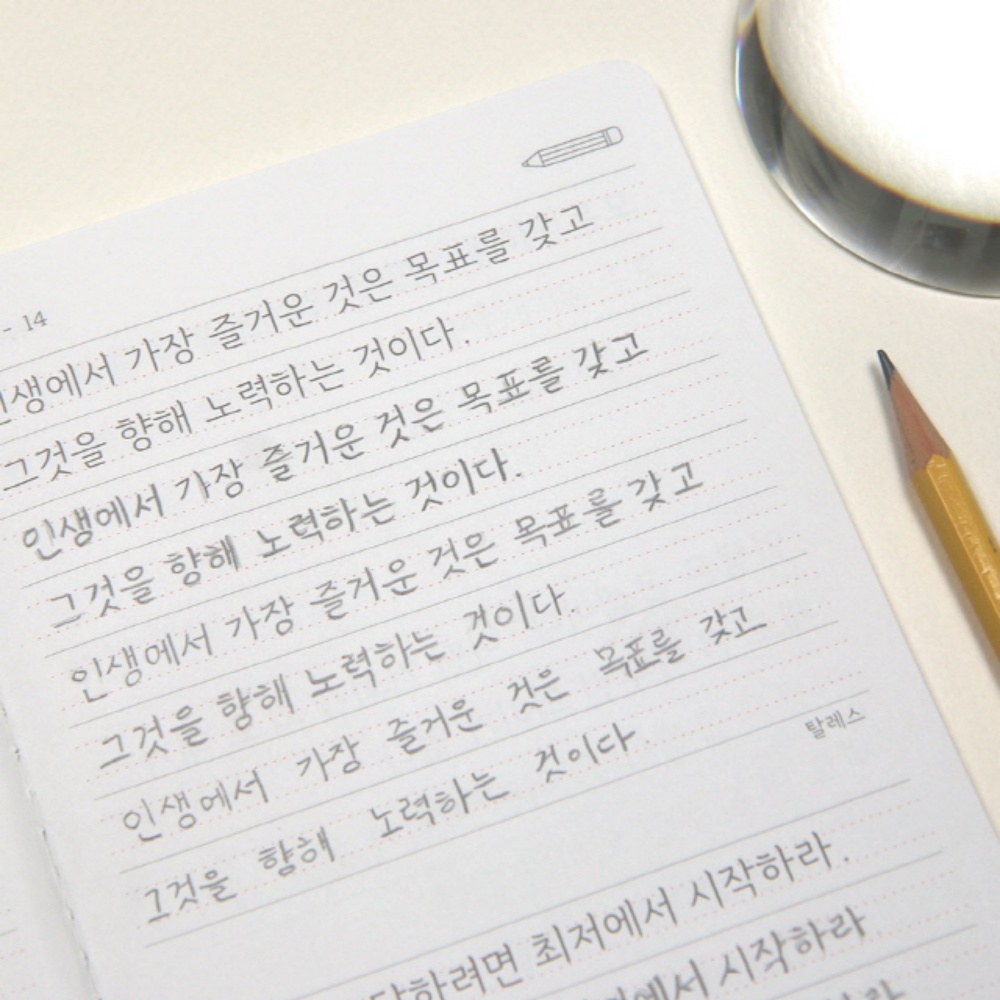 - 14
인생에서 가장 즐거운 것은 목표를 갖고
그것을 향해 노력하는 것이다.
인생에서 가장 즐거운 것은 목표를 갖고
그것을 향해 노력하는 것이다.
인생에서 가장 즐거운 것은 목표를 갖고
그것을 향해 노력하는 것이다.
인생에서 가장 즐거운 것은 목표를 갖고
그것을 향해 노력하는 것이다
탈레스
최저에서 시작하라.
시작하라